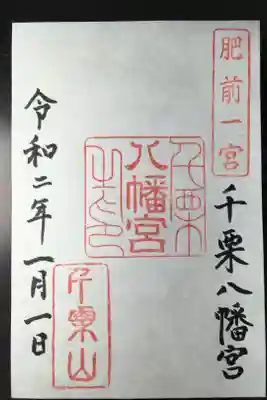 肥前一宮
千栗八幡宮
八幡宮
千栗山
令和二年一月一日